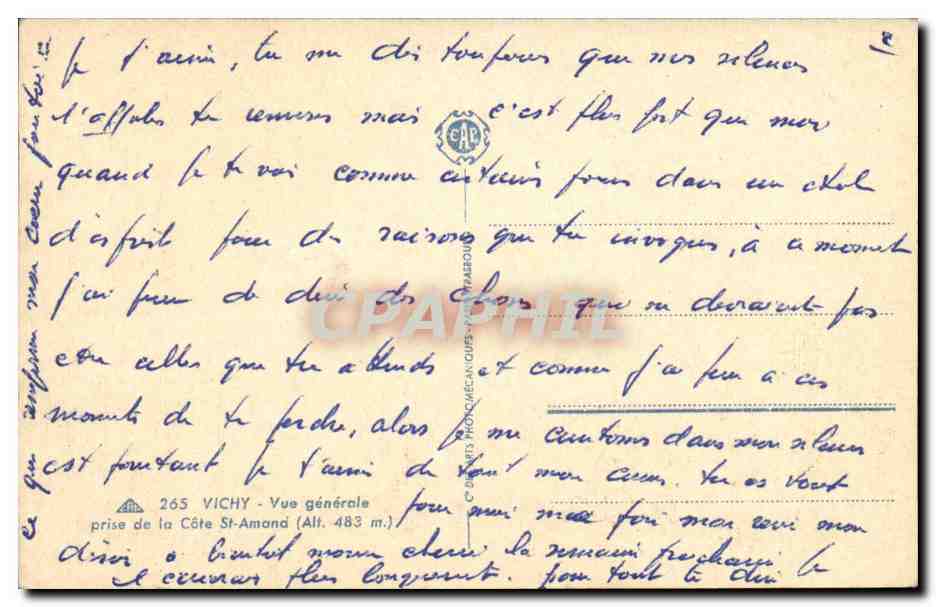 Je t'aime, tu me dis toujours que mes silences
t'affoles tu mais c'est plus fort que moi
quand je te vois comme certains jours dans un état
d'esprit pour des raisons que tu invoques, à ce moment
j'ai peur de dire des choses qui ne devraient pas
être celles que tu attends et comme j'ai peur à ces
moments de te perdre, alors je me cantonne dans mon silence
et pourtant je t'aime de tout mon coeur. tu es tout
pour moi ma foi mon mon
désir à bientôt mon chéri la semaine prochaine je
t'écrirais plus longuement. pour tout te dire
ce que mon coeur pour toi
CAP
265 VICHY - Vue générale
prise de la Côte St-Amand (Alt. 483 m.)
Cie DES ARTS PHOTOMÉCANIQUES - STRASBOURG
CPAPHIL